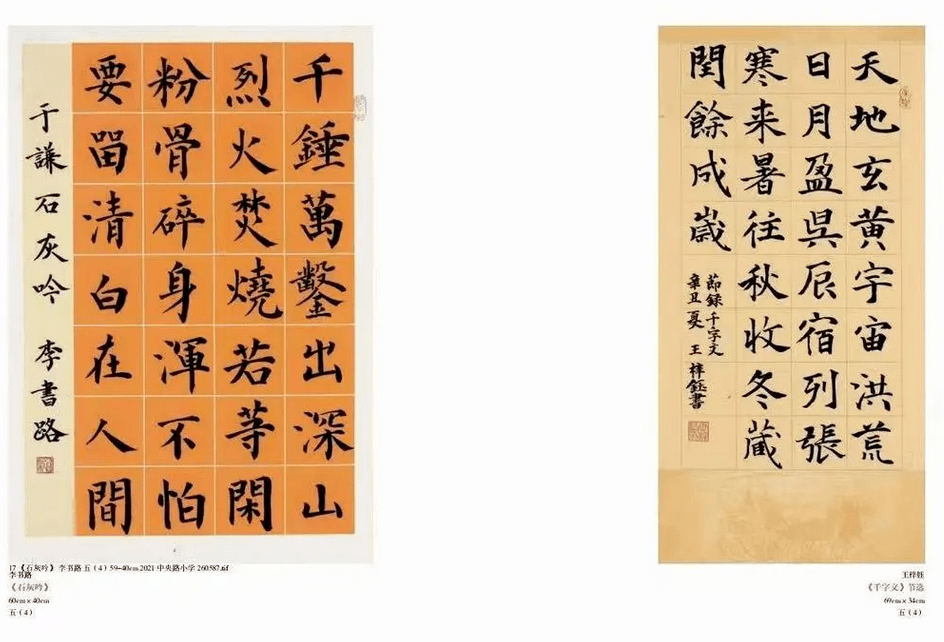 千錘萬鑿出深山
烈火焚燒若等閑
粉骨碎身渾不怕
要留清白在人間
于謙石灰吟 李書路
17 《石灰吟》 李书路 五（4）59-40cm 2021 中央路小学 260587.tif
李书路
《石灰吟》
60cm×40cm
五（4）
天地玄黄宇宙洪荒
日月盈昃辰宿列張
寒来暑往秋收冬藏
閏餘成歲
節録千字文
辛丑夏 王梓鈺書
王梓钰
《千字文》节选
69cm×34cm
五（4）